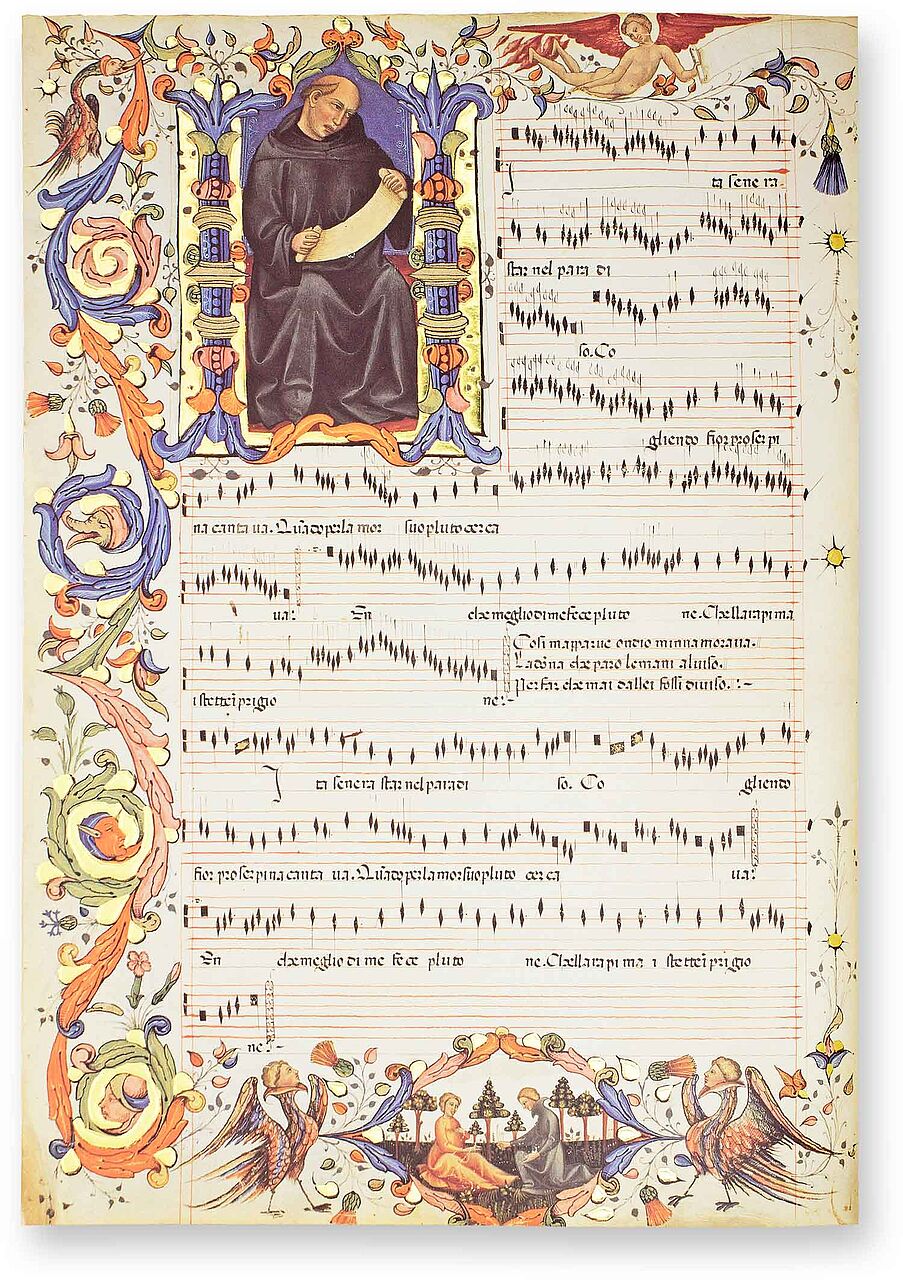 I
ta se ne ra
star nel para di
so. Co
gliendo fior proserpi
na canta ua. Quādo per la mor suo pluto cerca
ua: En che meglio di me fece pluto ne. Chella rapi ma
i stette ī prigio ne:-
Cosi mapparue ondio minnamoraua.
La dōna che paro le mani al uiso.
Per far che mai da llei fossi diuiso. :-
I ta se ne ra star nel paradi so. Co gliendo
fior proserpina canta ua. Quādo per la mor suo pluto cer ca ua:
En che meglio di me fe ce pluto ne. Chella rapi ma i stette ī prigio
ne:-